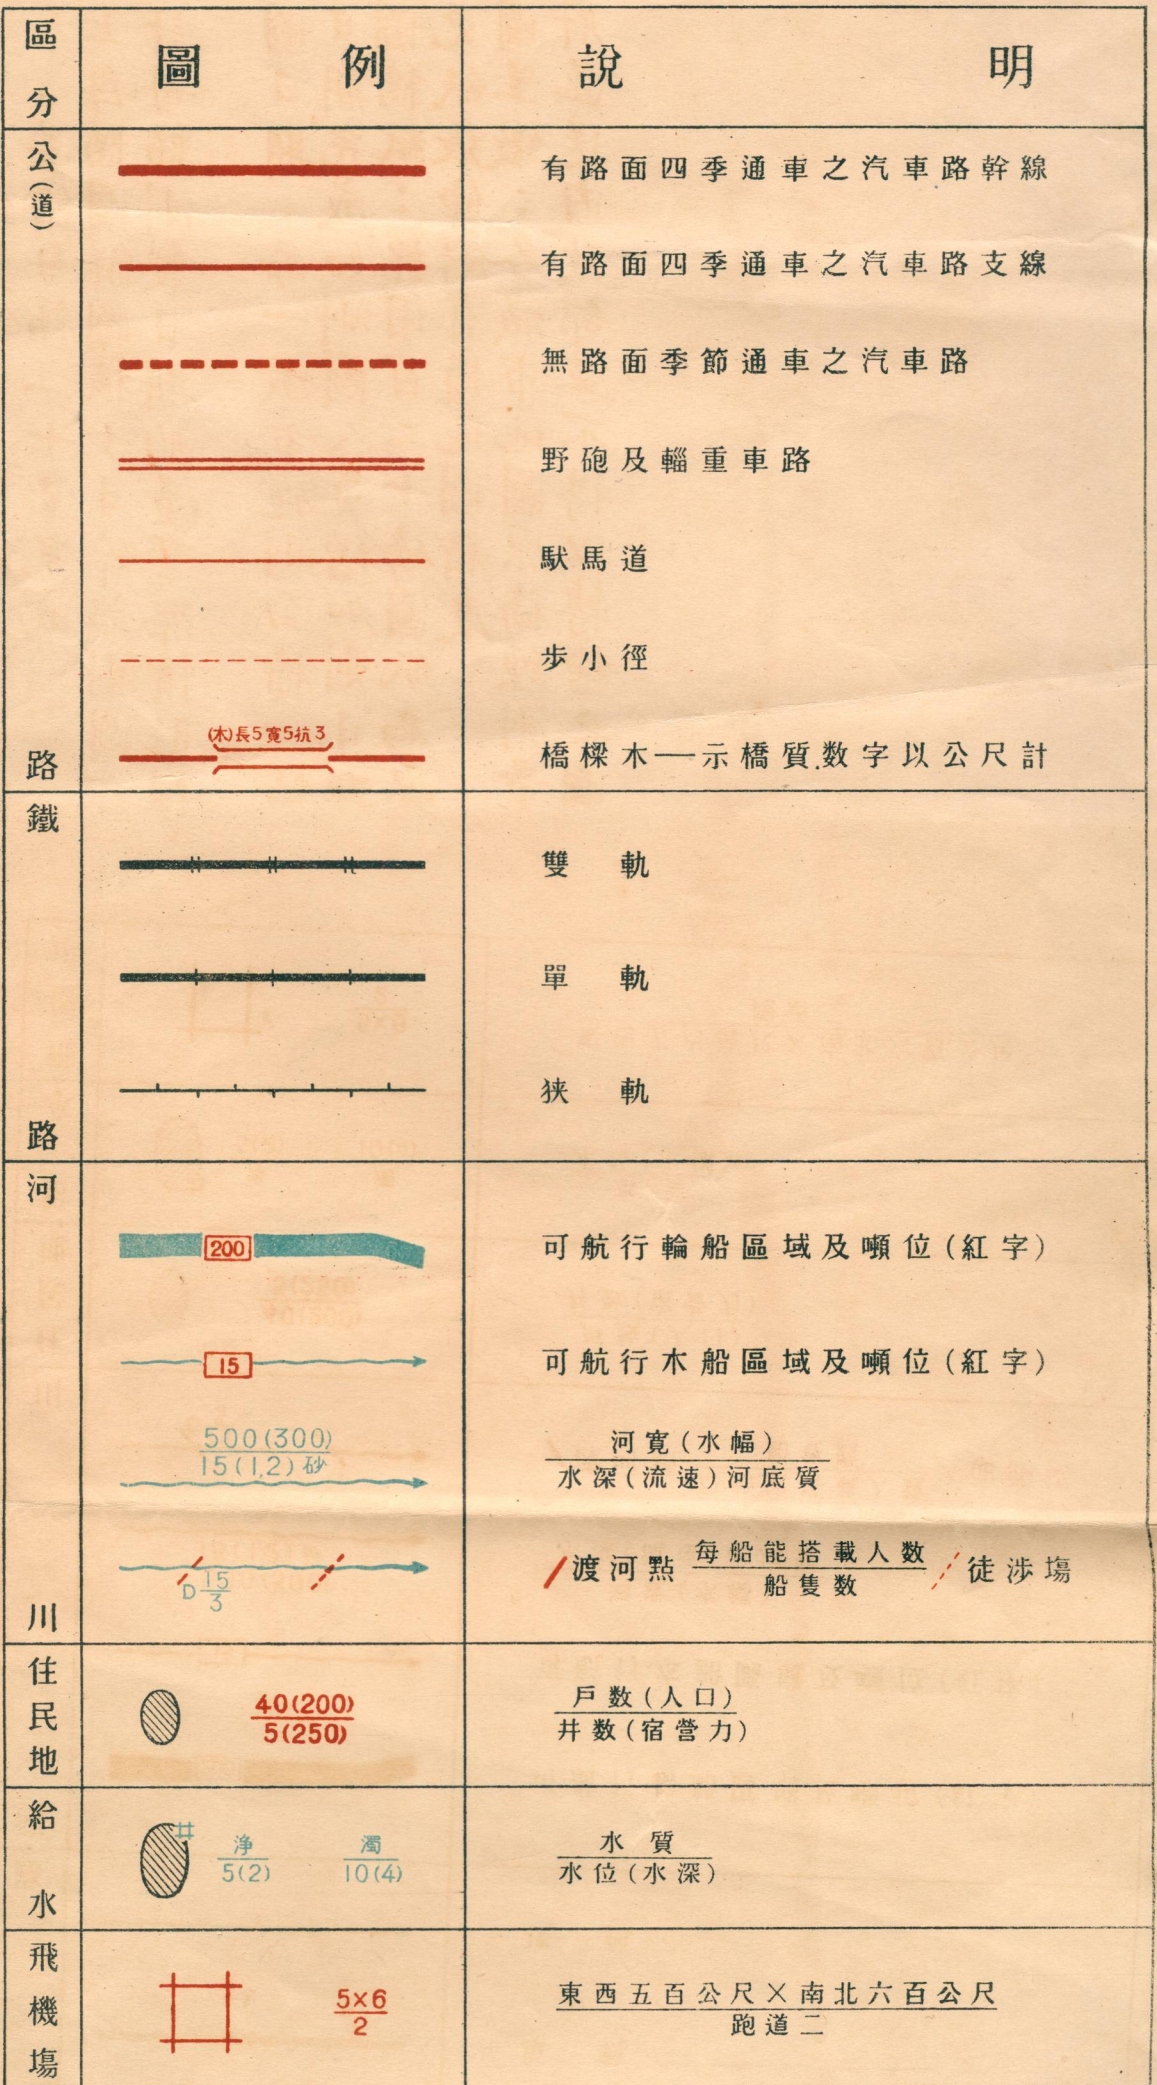 區分 圖例 說明
公(道)路
有路面四季通車之汽車路幹線
有路面四季通車之汽車路支線
無路面季節通車之汽車路
野砲及輜重車路
馱馬道
步小徑
(木)長5寬5抗3
橋樑木——示橋質.数字以公尺計
鐵路
雙軌
單軌
狭軌
河川
200
可航行輪船區域及噸位(紅字)
15
可航行木船區域及噸位(紅字)
500(300)
15(1.2)砂
河寬(水幅)
水深(流速)河底質
D 15
3
渡河點 每船能搭載人数
船隻数
徒涉塲
住民地
40(200)
5(250)
戶数(人口)
井数(宿營力)
給水
井
浄
5(2)
濁
10(4)
水質
水位(水深)
飛機塲
5×6
2
東西五百公尺×南北六百公尺
跑道二